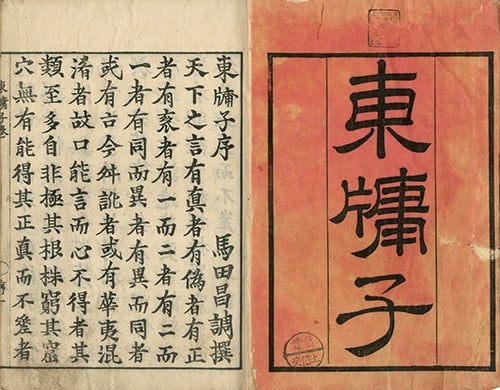 東牗子
東牗子序
馬田昌調撰
天下之言有真者有偽者有正
者有衺者有一而二者有二而
一者有同而異者有異而同者
或有古今舛訛者或有華夷混
淆者故口能言而心不得者其
類至多自非極其根株窮其窟
穴無有能得其正真而不差者
東牗子卷
序一